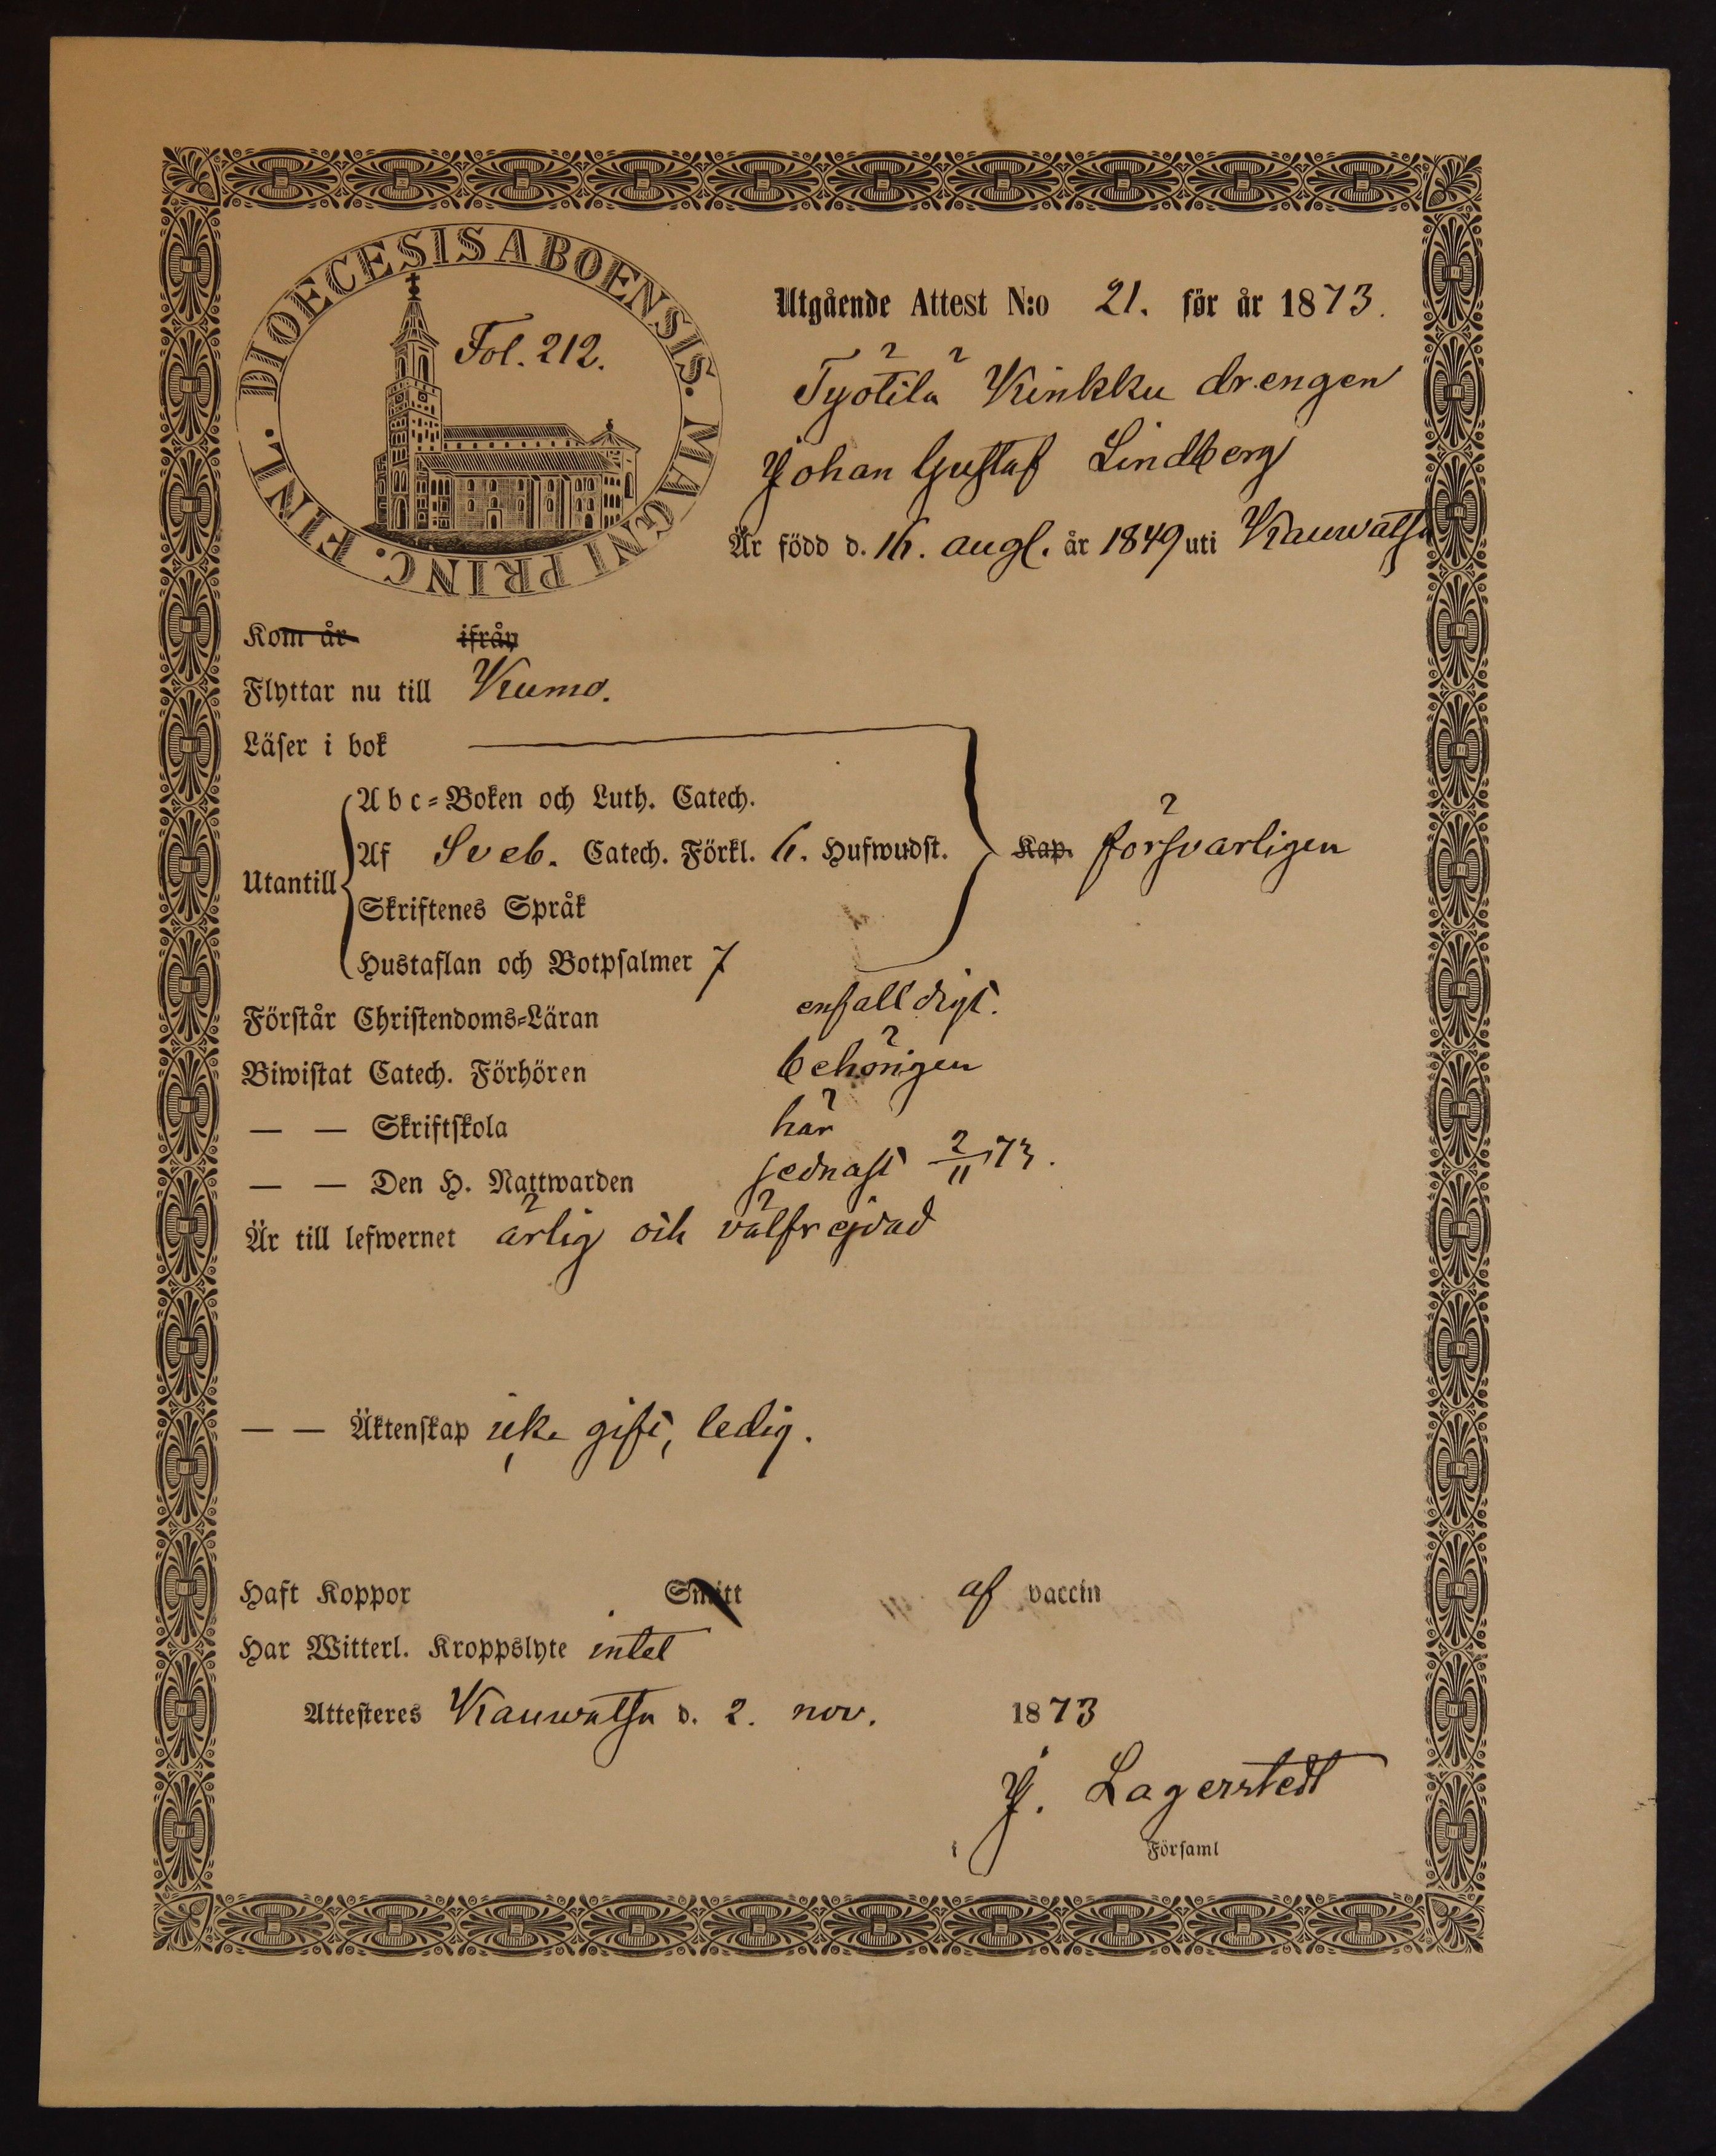 DIOECESIS ABOENSIS. MAGNI PRINC. FINL.
Fol. 212.
Utgående Attest N:o 21. för år 1873.
Työtilä Kinkku drengen
Johan Gustaf Lindberg
Är född d. 16. augl. år 1849 uti Kauwatsa
Kom år ifrån
Flyttar nu till Kumo.
Läser i bok
Utantill
Abc-Boken och Luth. Catech.
Af Sveb. Catech. Förkl. 6. Hufwudst. Kap. försvarligen
Skriftenes Språk
Hustaflan och Botpsalmer 7
Förstår Christendoms-Läran enfalldigt.
Biwistat Catech. Förhören behörigen
— — Skriftskola här
— — Den H. Nattwarden sednast 2/11 73.
Är till lefwernet ärlig och välfrejdad
— — Äktenskap icke gift, ledig.
Haft Koppor Smitt af vaccin
Har Witterl. Kroppslyte intet
Attesteres Kauwatsa d. 2. nov. 1873
J. Lagerstedt
i Församl